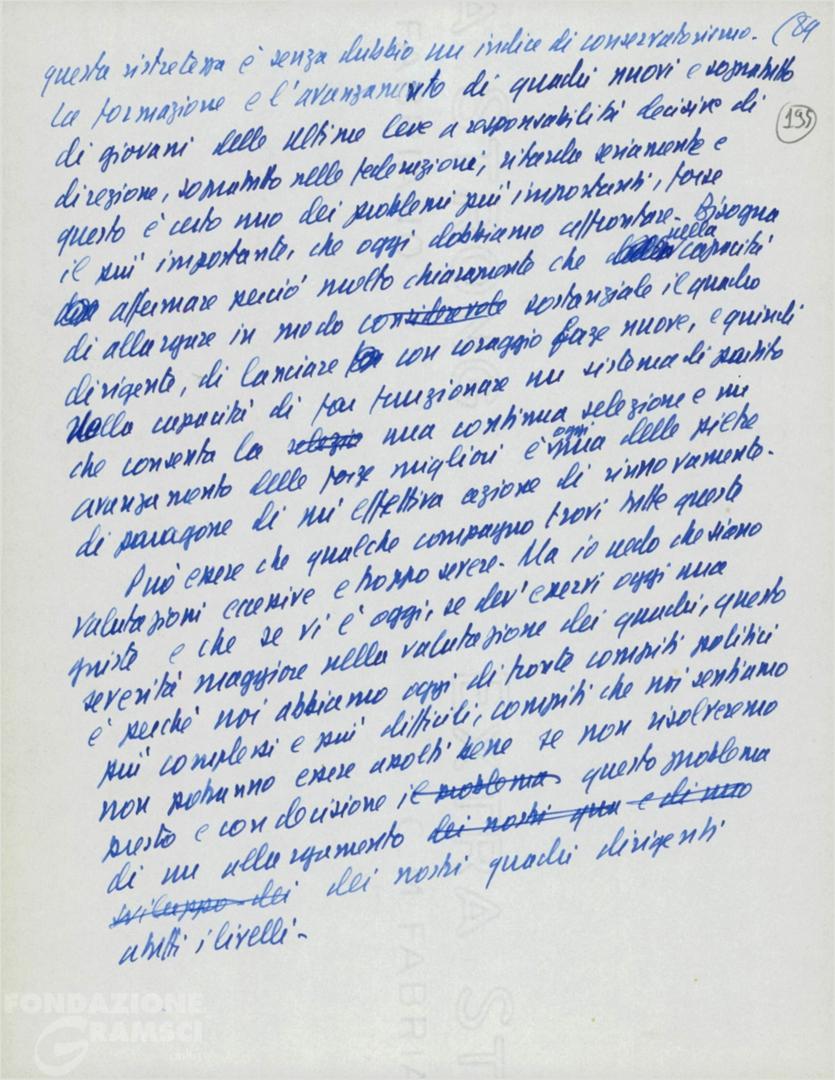 questa ristrettezza è senza dubbio un indice di conservatorismo. (84
195
La formazione e l'avanzamento di quadri nuovi e sopratutto
di giovani delle ultime leve a responsabilità decisive di
direzione, sopratutto nelle federazioni, ritarda seriamente e
questo è certo uno dei problemi più importanti, forse
il più importante, che oggi dobbiamo affrontare. Bisogna
affermare perciò molto chiaramente che nella capacità
di allargare in modo considerevole sostanziale il quadro
dirigente, di lanciare con coraggio forze nuove, e quindi
nella capacità di far funzionare un sistema di partito
che consenta la selezio una continua selezione e un
avanzamento delle forze migliori è oggi una delle pietre
di paragone di un'effettiva azione di rinnovamento.
Può essere che qualche compagno trovi tutte queste
valutazioni eccessive e troppo severe. Ma io credo che siano
giuste e che se vi è oggi, se dev'esservi oggi una
severità maggiore nella valutazione dei quadri, questo
è perché noi abbiamo oggi di fronte compiti politici
più complessi e più difficili, compiti che noi sentiamo
non potranno essere assolti bene se non risolveremo
presto e con decisione il problema questo problema
di un allargamento dei nostri qua e di uno
sviluppo dei dei nostri quadri dirigenti
a tutti i livelli.
FONDAZIONE
GRAMSCI